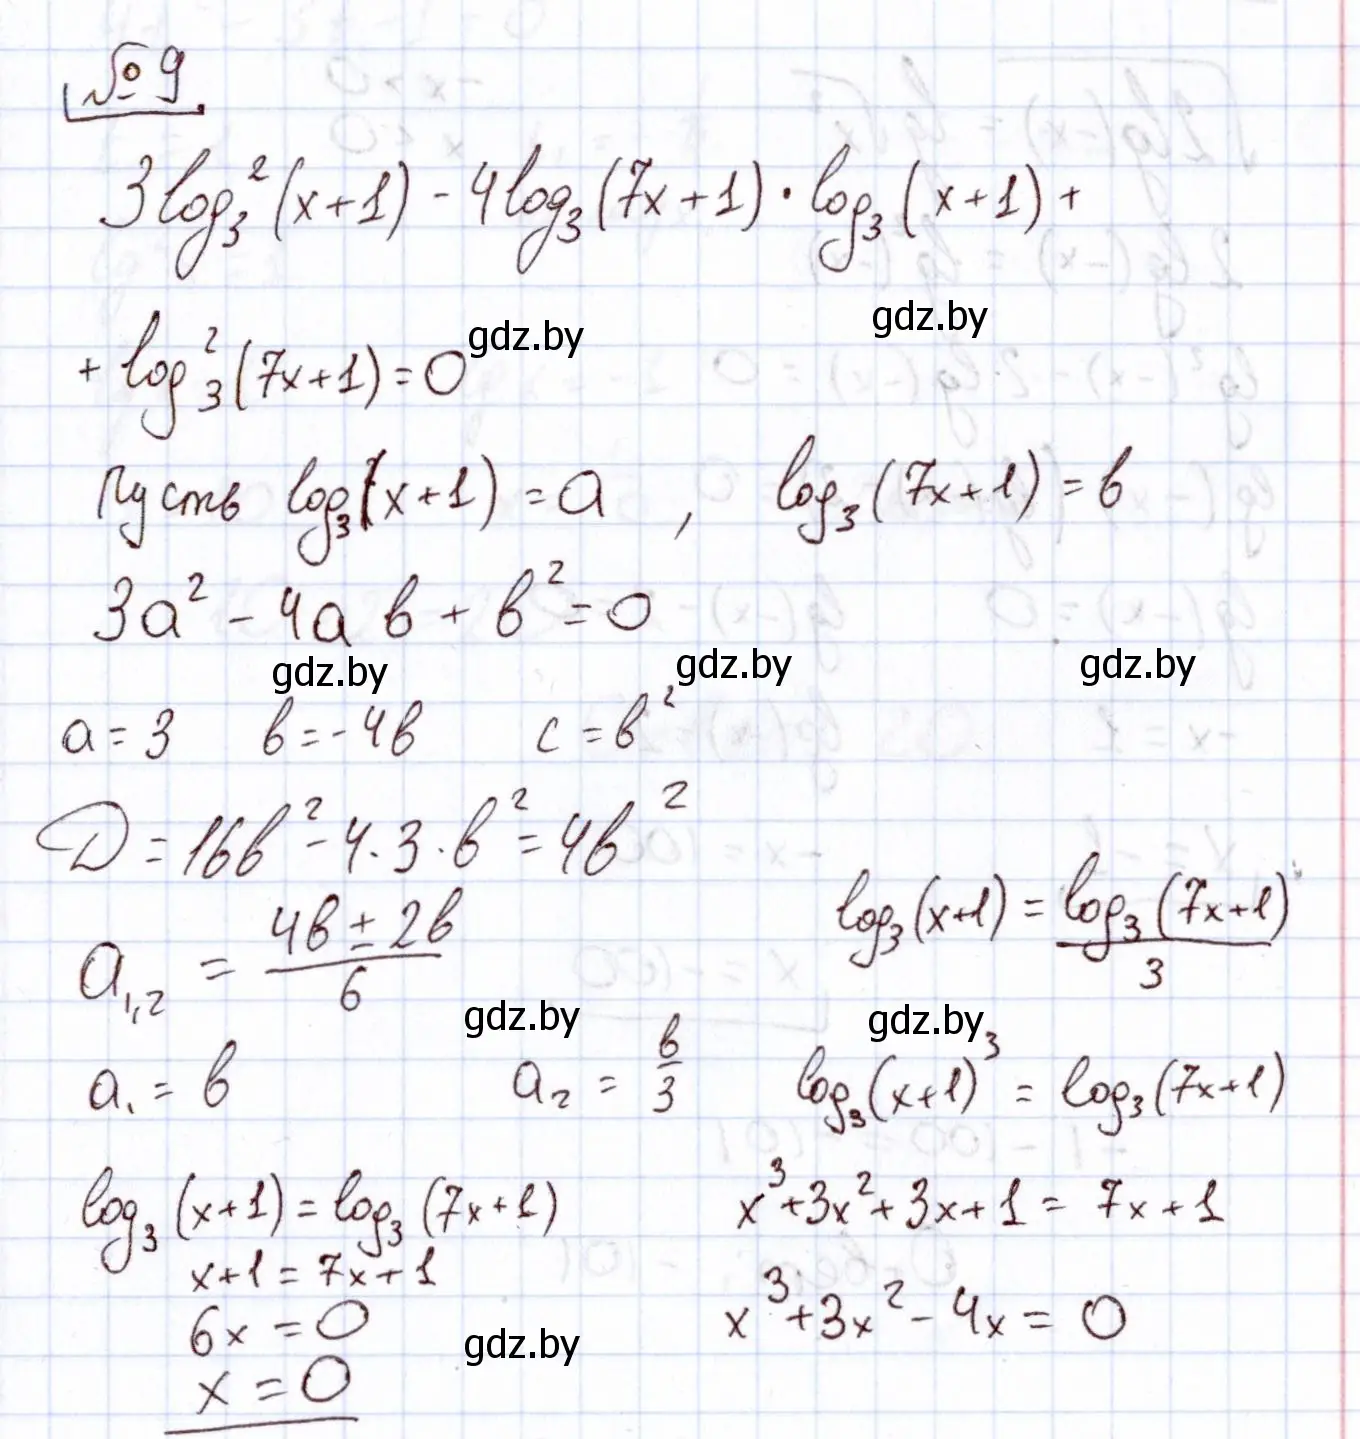 № 9
3log₃²(x+1) - 4log₃(7x+1)·log₃(x+1) +
+ log²₃(7x+1)=0
gdz.by gdz.by
Пусть log₃(x+1) = a, log₃(7x+1) = b
3a² - 4a b + b² = 0
gdz.by gdz.by gdz.by
a = 3 b = -4b c = b²
D = 16b² - 4·3·b² = 4b²
a₁,₂ = (4b ± 2b)/6
log₃(x+1) = log₃(7x+1)/3
gdz.by gdz.by
a₁ = b a₂ = b/3
log₃(x+1)³ = log₃(7x+1)
log₃(x+1) = log₃(7x+1)
x+1 = 7x+1
6x = 0
x = 0
x³+3x²+3x+1 = 7x+1
x³+3x²-4x = 0
gdz.by